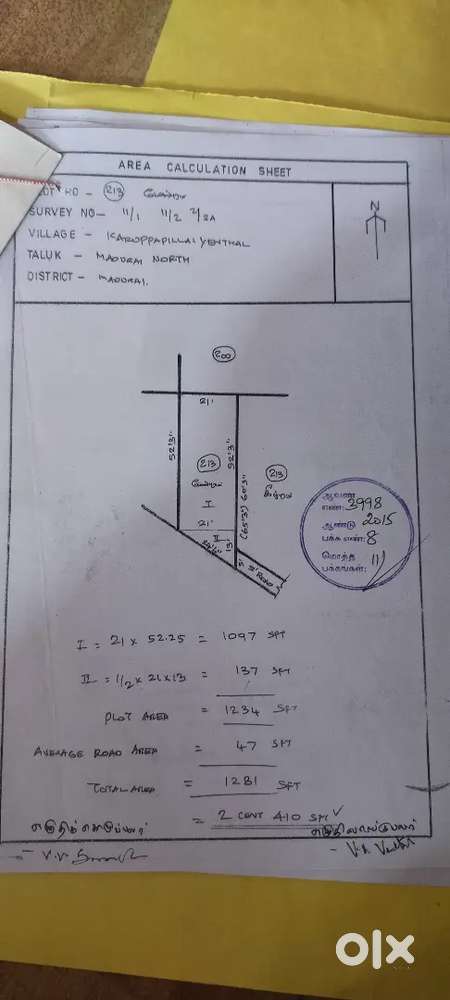 AREA CALCULATION SHEET
NO - 213 மேற்கு
SURVEY NO- 11/1 11/2 4/2A
VILLAGE - KARUPPAPILLAIYENTHAL
TALUK - MADURAI NORTH
DISTRICT - MADURAI.
N
200
21'
52'3"
52'3"
213
213
I
(65'3") 60'3"
21'
II
13'
5'
ROAD
ஆவண எண்: 3998
ஆண்டு 2015
பக்க எண்: 8
மொத்த பக்கங்கள்: 11
I = 21 x 52.25 = 1097 SFT
II = 1/2 x 21 x 13 = 137 SFT
PLOT AREA = 1234 SFT
AVERAGE ROAD AREA = 47 SFT
TOTAL AREA = 1281 SFT
= 2 CENT 410 SFT
எழுதிக்கொடுப்பவர்
எழுதிவாங்குபவர்
olx